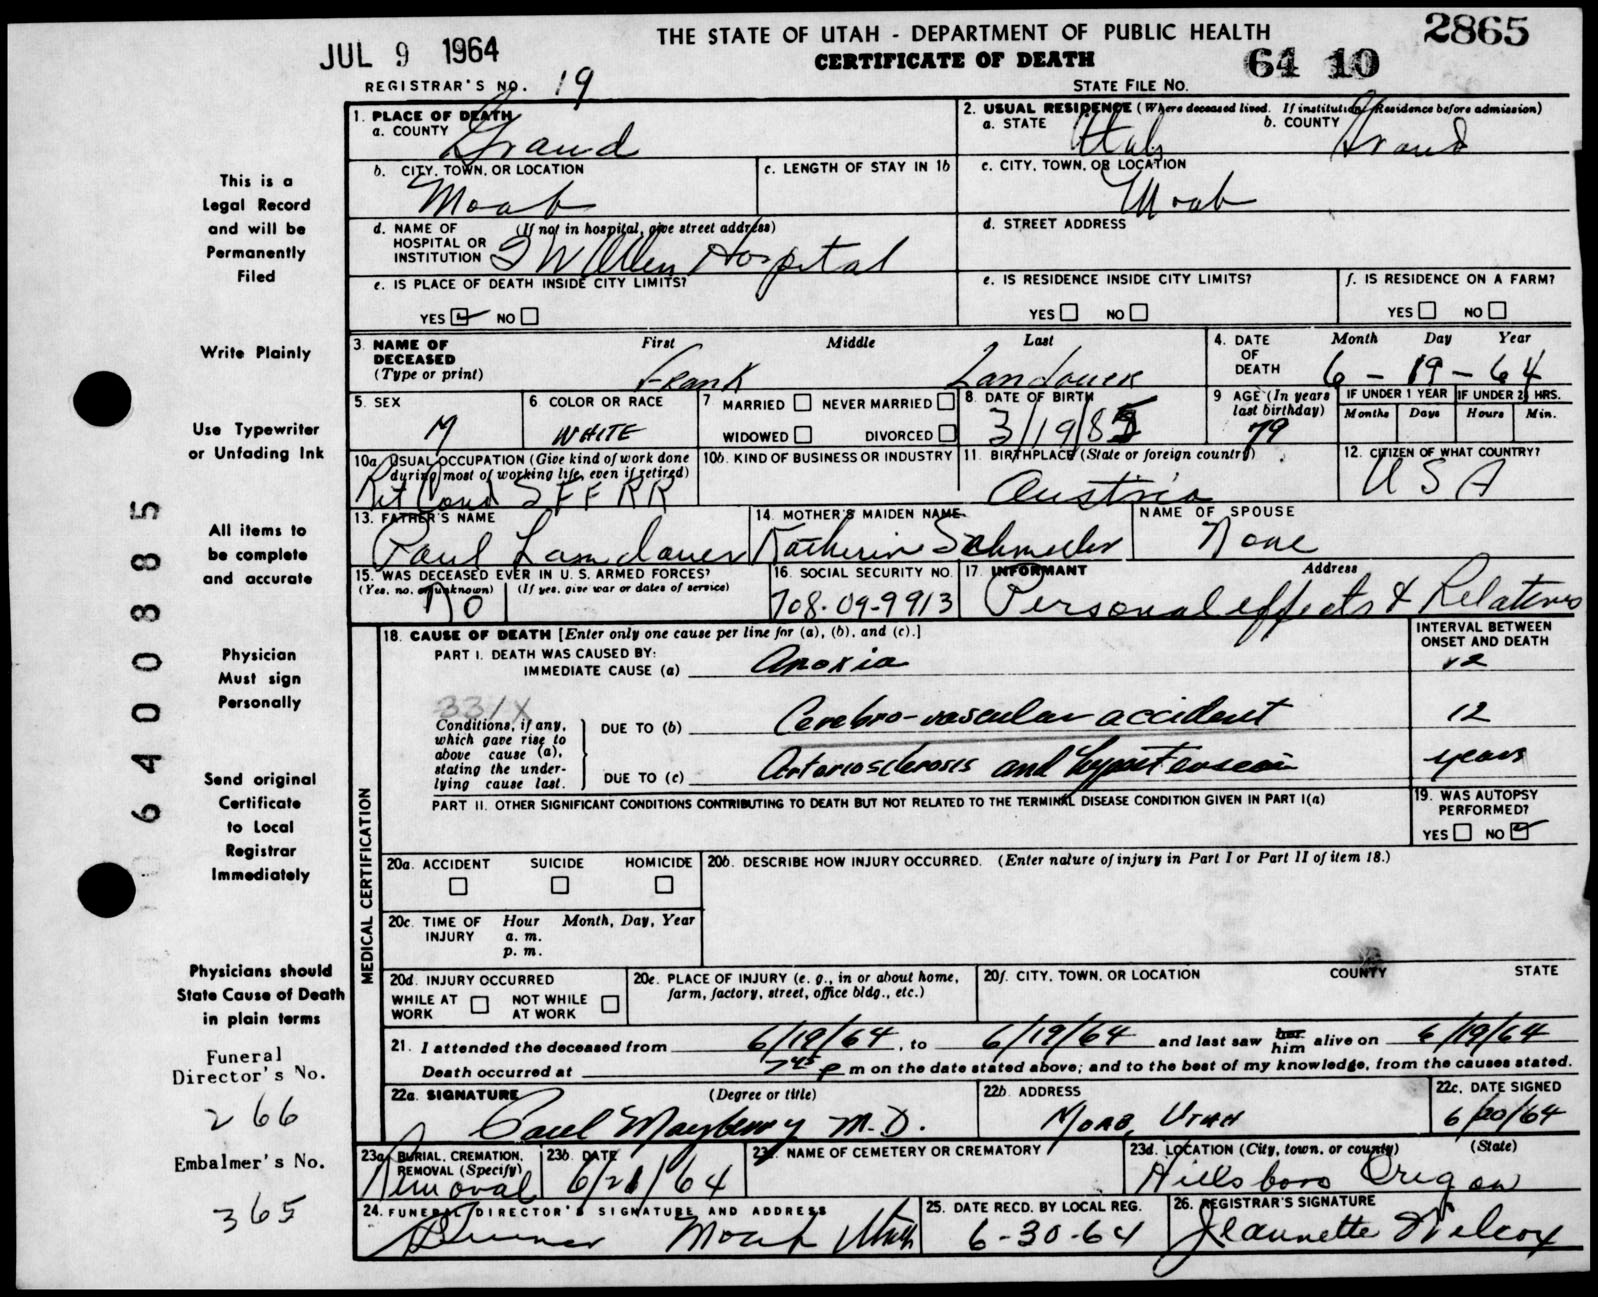 JUL 9 1964
THE STATE OF UTAH - DEPARTMENT OF PUBLIC HEALTH
CERTIFICATE OF DEATH
2865
64 10
REGISTRAR'S NO. 19
STATE FILE NO.
This is a
Legal Record
and will be
Permanently
Filed
Write Plainly
Use Typewriter
or Unfading Ink
All items to
be complete
and accurate
Physician
Must sign
Personally
Send original
Certificate
to Local
Registrar
Immediately
Physicians should
State Cause of Death
in plain terms
Funeral
Director's No.
266
Embalmer's No.
365
64000885
1. PLACE OF DEATH
a. COUNTY Grand
2. USUAL RESIDENCE (Where deceased lived. If institution: Residence before admission)
a. STATE Utah b. COUNTY Grand
b. CITY, TOWN, OR LOCATION Moab
c. LENGTH OF STAY IN 1b
c. CITY, TOWN, OR LOCATION Moab
d. NAME OF HOSPITAL OR INSTITUTION (If not in hospital, give street address) Allen Hospital
d. STREET ADDRESS
e. IS PLACE OF DEATH INSIDE CITY LIMITS?
YES NO
e. IS RESIDENCE INSIDE CITY LIMITS?
YES NO
f. IS RESIDENCE ON A FARM?
YES NO
3. NAME OF DECEASED (Type or print) First Middle Last
Frank Landauer
4. DATE OF DEATH Month Day Year
6 - 19 - 64
5. SEX M
6. COLOR OR RACE WHITE
7 MARRIED NEVER MARRIED
WIDOWED DIVORCED
8. DATE OF BIRTH 3/19/85
9 AGE (In years last birthday) 79
IF UNDER 1 YEAR IF UNDER 24 HRS.
Months Days Hours Min.
10a. USUAL OCCUPATION (Give kind of work done during most of working life, even if retired)
Ret Cond S F F RR
10b. KIND OF BUSINESS OR INDUSTRY
11. BIRTHPLACE (State or foreign country) Austria
12. CITIZEN OF WHAT COUNTRY? USA
13. FATHER'S NAME Paul Landauer
14. MOTHER'S MAIDEN NAME Katherine
NAME OF SPOUSE None
15. WAS DECEASED EVER IN U. S. ARMED FORCES?
(Yes, no, or unknown) (If yes, give war or dates of service)
No
16. SOCIAL SECURITY NO. 708-09-9913
17. INFORMANT Address
Personal effects & Relatives
MEDICAL CERTIFICATION
18. CAUSE OF DEATH [Enter only one cause per line for (a), (b), and (c).]
INTERVAL BETWEEN ONSET AND DEATH
PART I. DEATH WAS CAUSED BY:
IMMEDIATE CAUSE (a) Anoxia 12
331X
Conditions, if any, which gave rise to above cause (a), stating the under-lying cause last.
DUE TO (b) Cerebro-vascular accident 12
DUE TO (c) Arteriosclerosis and hypertension years
PART II. OTHER SIGNIFICANT CONDITIONS CONTRIBUTING TO DEATH BUT NOT RELATED TO THE TERMINAL DISEASE CONDITION GIVEN IN PART I(a)
19. WAS AUTOPSY PERFORMED?
YES NO
20a. ACCIDENT SUICIDE HOMICIDE
20b. DESCRIBE HOW INJURY OCCURRED. (Enter nature of injury in Part I or Part II of item 18.)
20c. TIME OF INJURY Hour Month, Day, Year
a. m.
p. m.
20d. INJURY OCCURRED
WHILE AT WORK NOT WHILE AT WORK
20e. PLACE OF INJURY (e. g., in or about home, farm, factory, street, office bldg., etc.)
20f. CITY, TOWN, OR LOCATION COUNTY STATE
21. I attended the deceased from 6/19/64, to 6/19/64 and last saw her him alive on 6/19/64
Death occurred at 7 45 p m on the date stated above; and to the best of my knowledge, from the causes stated.
22a. SIGNATURE (Degree or title)
Paul Mayberry M.D.
22b. ADDRESS
MOAB, UTAH
22c. DATE SIGNED
6/20/64
23a. BURIAL, CREMATION, REMOVAL (Specify)
Removal
23b. DATE
6/21/64
23c. NAME OF CEMETERY OR CREMATORY
23d. LOCATION (City, town, or county) (State)
Hillsboro Oregon
24. FUNERAL DIRECTOR'S SIGNATURE AND ADDRESS
Moab Utah
25. DATE RECD. BY LOCAL REG.
6-30-64
26. REGISTRAR'S SIGNATURE
Jeannette Wilcox